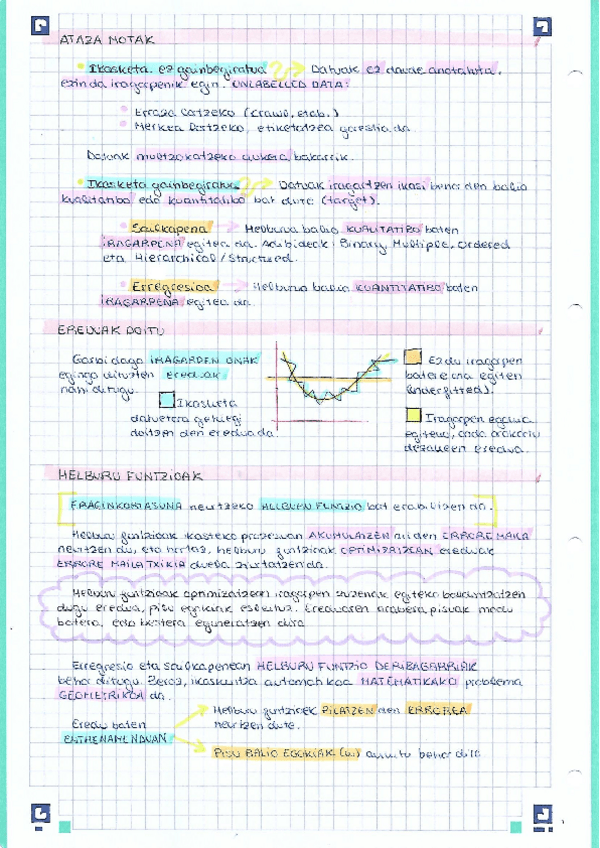 ATAZA MOTAK
• Ikasketa ez gainbegiratua → Datuak ez daude anotatuta,
ezin da iragarpenik egin. UNLABELLED DATA:
• Erraza lortzeko (crawl, etab.)
• Merkea lortzeko, etiketatzea garestia da.
Datuak multzokatzeko aukera bakarrik.
• Ikasketa gainbegiratua → Datuak iragartzen ikasi behar den balio
kualitatibo edo kuantitatibo bat dute (target).
• Sailkapena → Helburua balio KUALITATIBO baten
IRAGARPENA egitea da. Adibideak: Binary, Multiple, Ordered
eta Hierarchical / Structured.
• Erregresioa → Helburua balio KUANTITATIBO baten
IRAGARPENA egitea da.
EREDUAK DOITU
Garbi dago IRAGARPEN ONAK
egingo dituzten ereduak
nahi ditugu.
Ikasketa
datuetara gehiegi
doitzen den eredua da.
Ez du iragarpen
bat ere ona egiten
(underfitted).
Iragarpen egokia
egiteko, ondo orokortu
dezakeen eredua.
HELBURU FUNTZIOAK
ERAGINKORTASUNA neurtzeko HELBURU FUNTZIO bat erabiltzen da.
Helburu funtzioak ikasteko prozesuan AKUMULATZEN ari den ERRORE MAILA
neurtzen du, eta hortaz, helburu funtzioak OPTIMIZATZEAN ereduak
ERRORE MAILA TXIKIA duela ziurtatzen da.
Helburu funtzioak optimizatzean iragarpen zuzenak egiteko baldintzatzen
dugu eredua, pisu egokiak esleituz. Ereduaren arabera pisuak modu
batera, edo bestera eguneratzen dira.
Erregresio eta sailkapenean HELBURU FUNTZIO DERIBAGARRIAK
behar ditugu. Beraz, ikasketa automatikoa MATEMATIKAKO problema
GEOMETRIKOA da.
Eredu baten
ENTRENAMENDUAN
Helburu funtzioek PILATZEN den ERROREA
neurtzen dute.
PISU BALIO EGOKIAK (w) behar dira